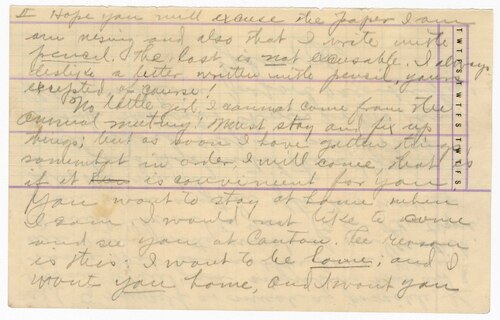 II Hope you will excuse the paper I am
am using and also that I write with
pencil, the last is not excusable. I always
dislike a letter written with pencil, yours
excepted of course!
No little girl I cannot come from the
annual meeting! Must stay and fix up
things; but as soon I have gotten things
somewhat in order I will come, that is
if it is convenient for you.
You want to stay at home when
I come, I would not like to come
and see you at Canton. The reason
is this: I want to be home; and I
want you home, and I want you
T W T F S T W T F S T W T F S